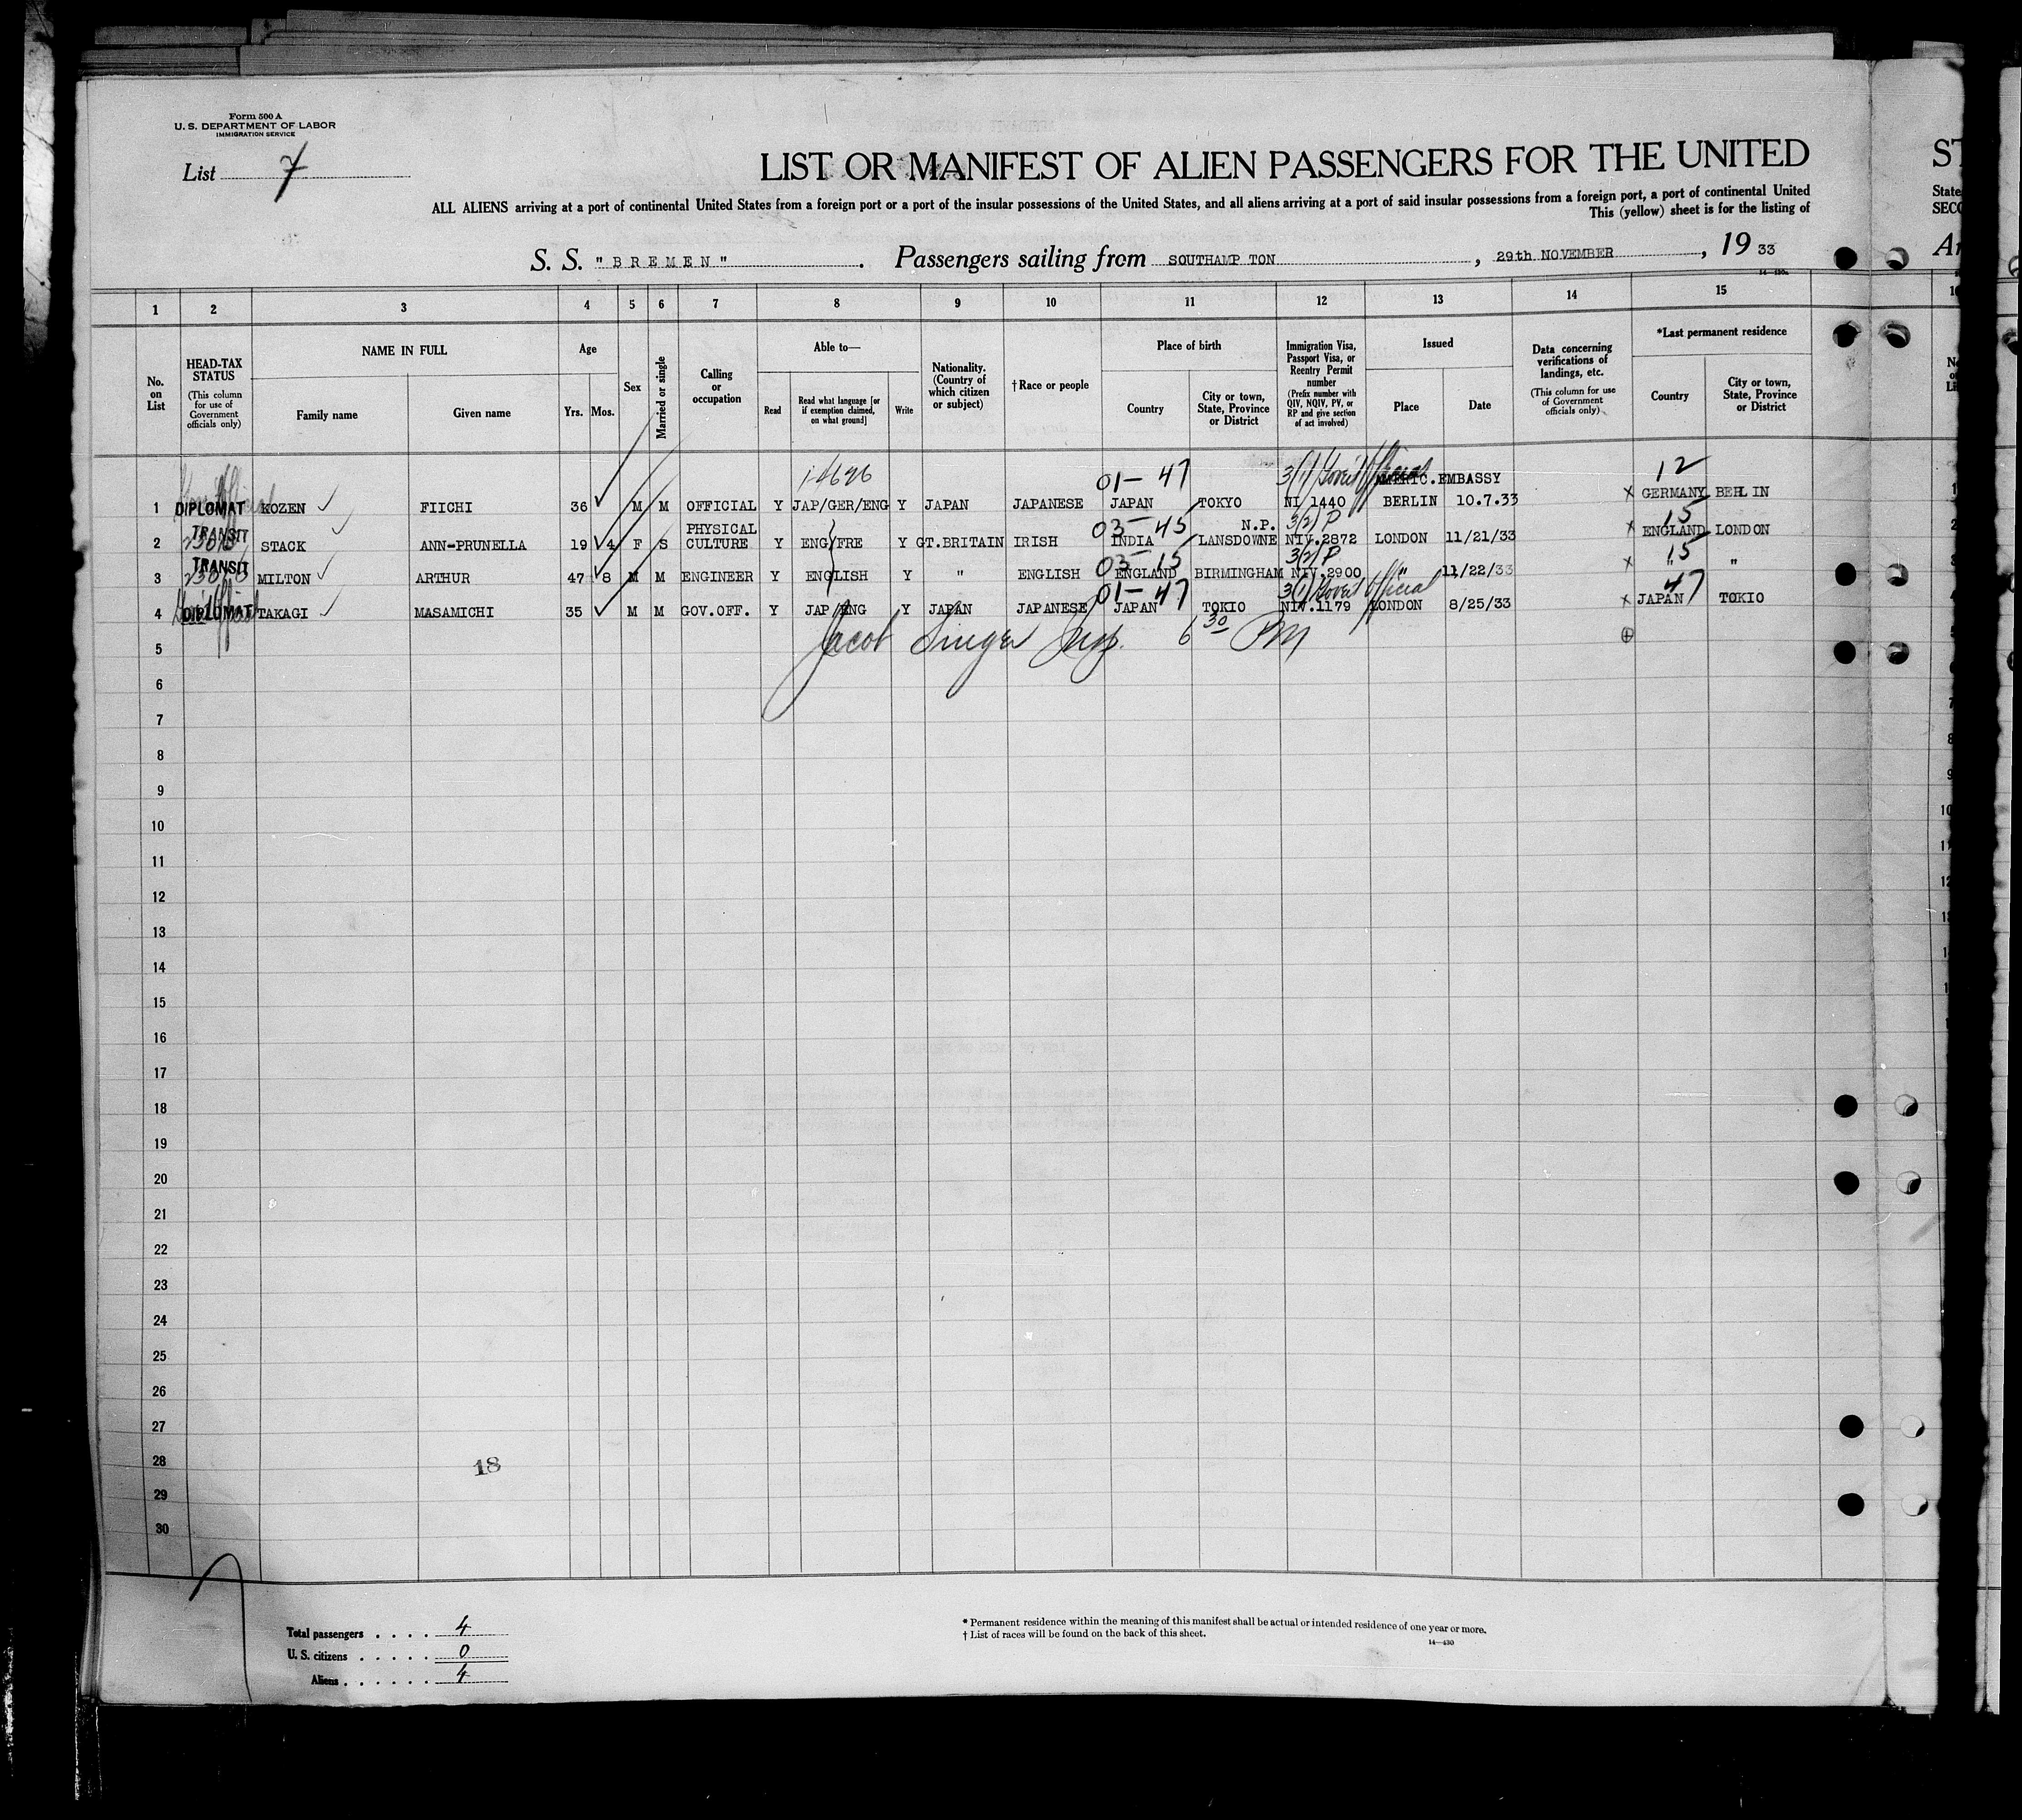 Form 500 A
U. S. DEPARTMENT OF LABOR
IMMIGRATION SERVICE
List 7
LIST OR MANIFEST OF ALIEN PASSENGERS FOR THE UNITED
ALL ALIENS arriving at a port of continental United States from a foreign port or a port of the insular possessions of the United States, and all aliens arriving at a port of said insular possessions from a foreign port, a port of continental United
This (yellow) sheet is for the listing of
S. S. "BREMEN". Passengers sailing from SOUTHAMPTON, 29th NOVEMBER, 19 33
1 2 3 4 5 6 7 8 9 10 11 12 13 14 15
No. on List
HEAD-TAX STATUS (This column for use of Government officials only)
NAME IN FULL
Family name Given name
Age
Yrs. Mos.
Sex
Married or single
Calling or occupation
Able to—
Read Read what language [or if exemption claimed, on what ground] Write
Nationality. (Country of which citizen or subject)
† Race or people
Place of birth
Country City or town, State, Province or District
Immigration Visa, Passport Visa, or Reentry Permit number (Prefix number with QIV, NQIV, PV, or RP and give section of act involved)
Issued
Place Date
Data concerning verifications of landings, etc. (This column for use of Government officials only)
*Last permanent residence
Country City or town, State, Province or District
01-47 3(1) Gov't Official EMBASSY 12
1 DIPLOMAT KOZEN FIICHI 36 M M OFFICIAL Y JAP/GER/ENG Y JAPAN JAPANESE JAPAN TOKYO NI 1440 BERLIN 10.7.33 x GERMANY BERLIN
TRANSIT PHYSICAL 03-45 N.P. 3(2) P 15
2 STACK ANN-PRUNELLA 19 4 F S CULTURE Y ENG/FRE Y GT.BRITAIN IRISH INDIA LANSDOWNE NIV.2872 LONDON 11/21/33 x ENGLAND LONDON
TRANSIT 03-15 3(2) P 15
3 MILTON ARTHUR 47 8 M M ENGINEER Y ENGLISH Y " ENGLISH ENGLAND BIRMINGHAM NIV.2900 " 11/22/33 x " "
01-47 3(1) Gov't Official 47
4 DIPLOMAT TAKAGI MASAMICHI 35 M M GOV.OFF. Y JAP/ENG Y JAPAN JAPANESE JAPAN TOKIO NIV.1179 LONDON 8/25/33 x JAPAN TOKIO
5 Jacob 6 30 PM
6
7
8
9
10
11
12
13
14
15
16
17
18
19
20
21
22
23
24
25
26
27
28 18
29
30
Total passengers . . . . 4
U. S. citizens . . . . . 0
Aliens . . . . . . 4
* Permanent residence within the meaning of this manifest shall be actual or intended residence of one year or more.
† List of races will be found on the back of this sheet.
14—430